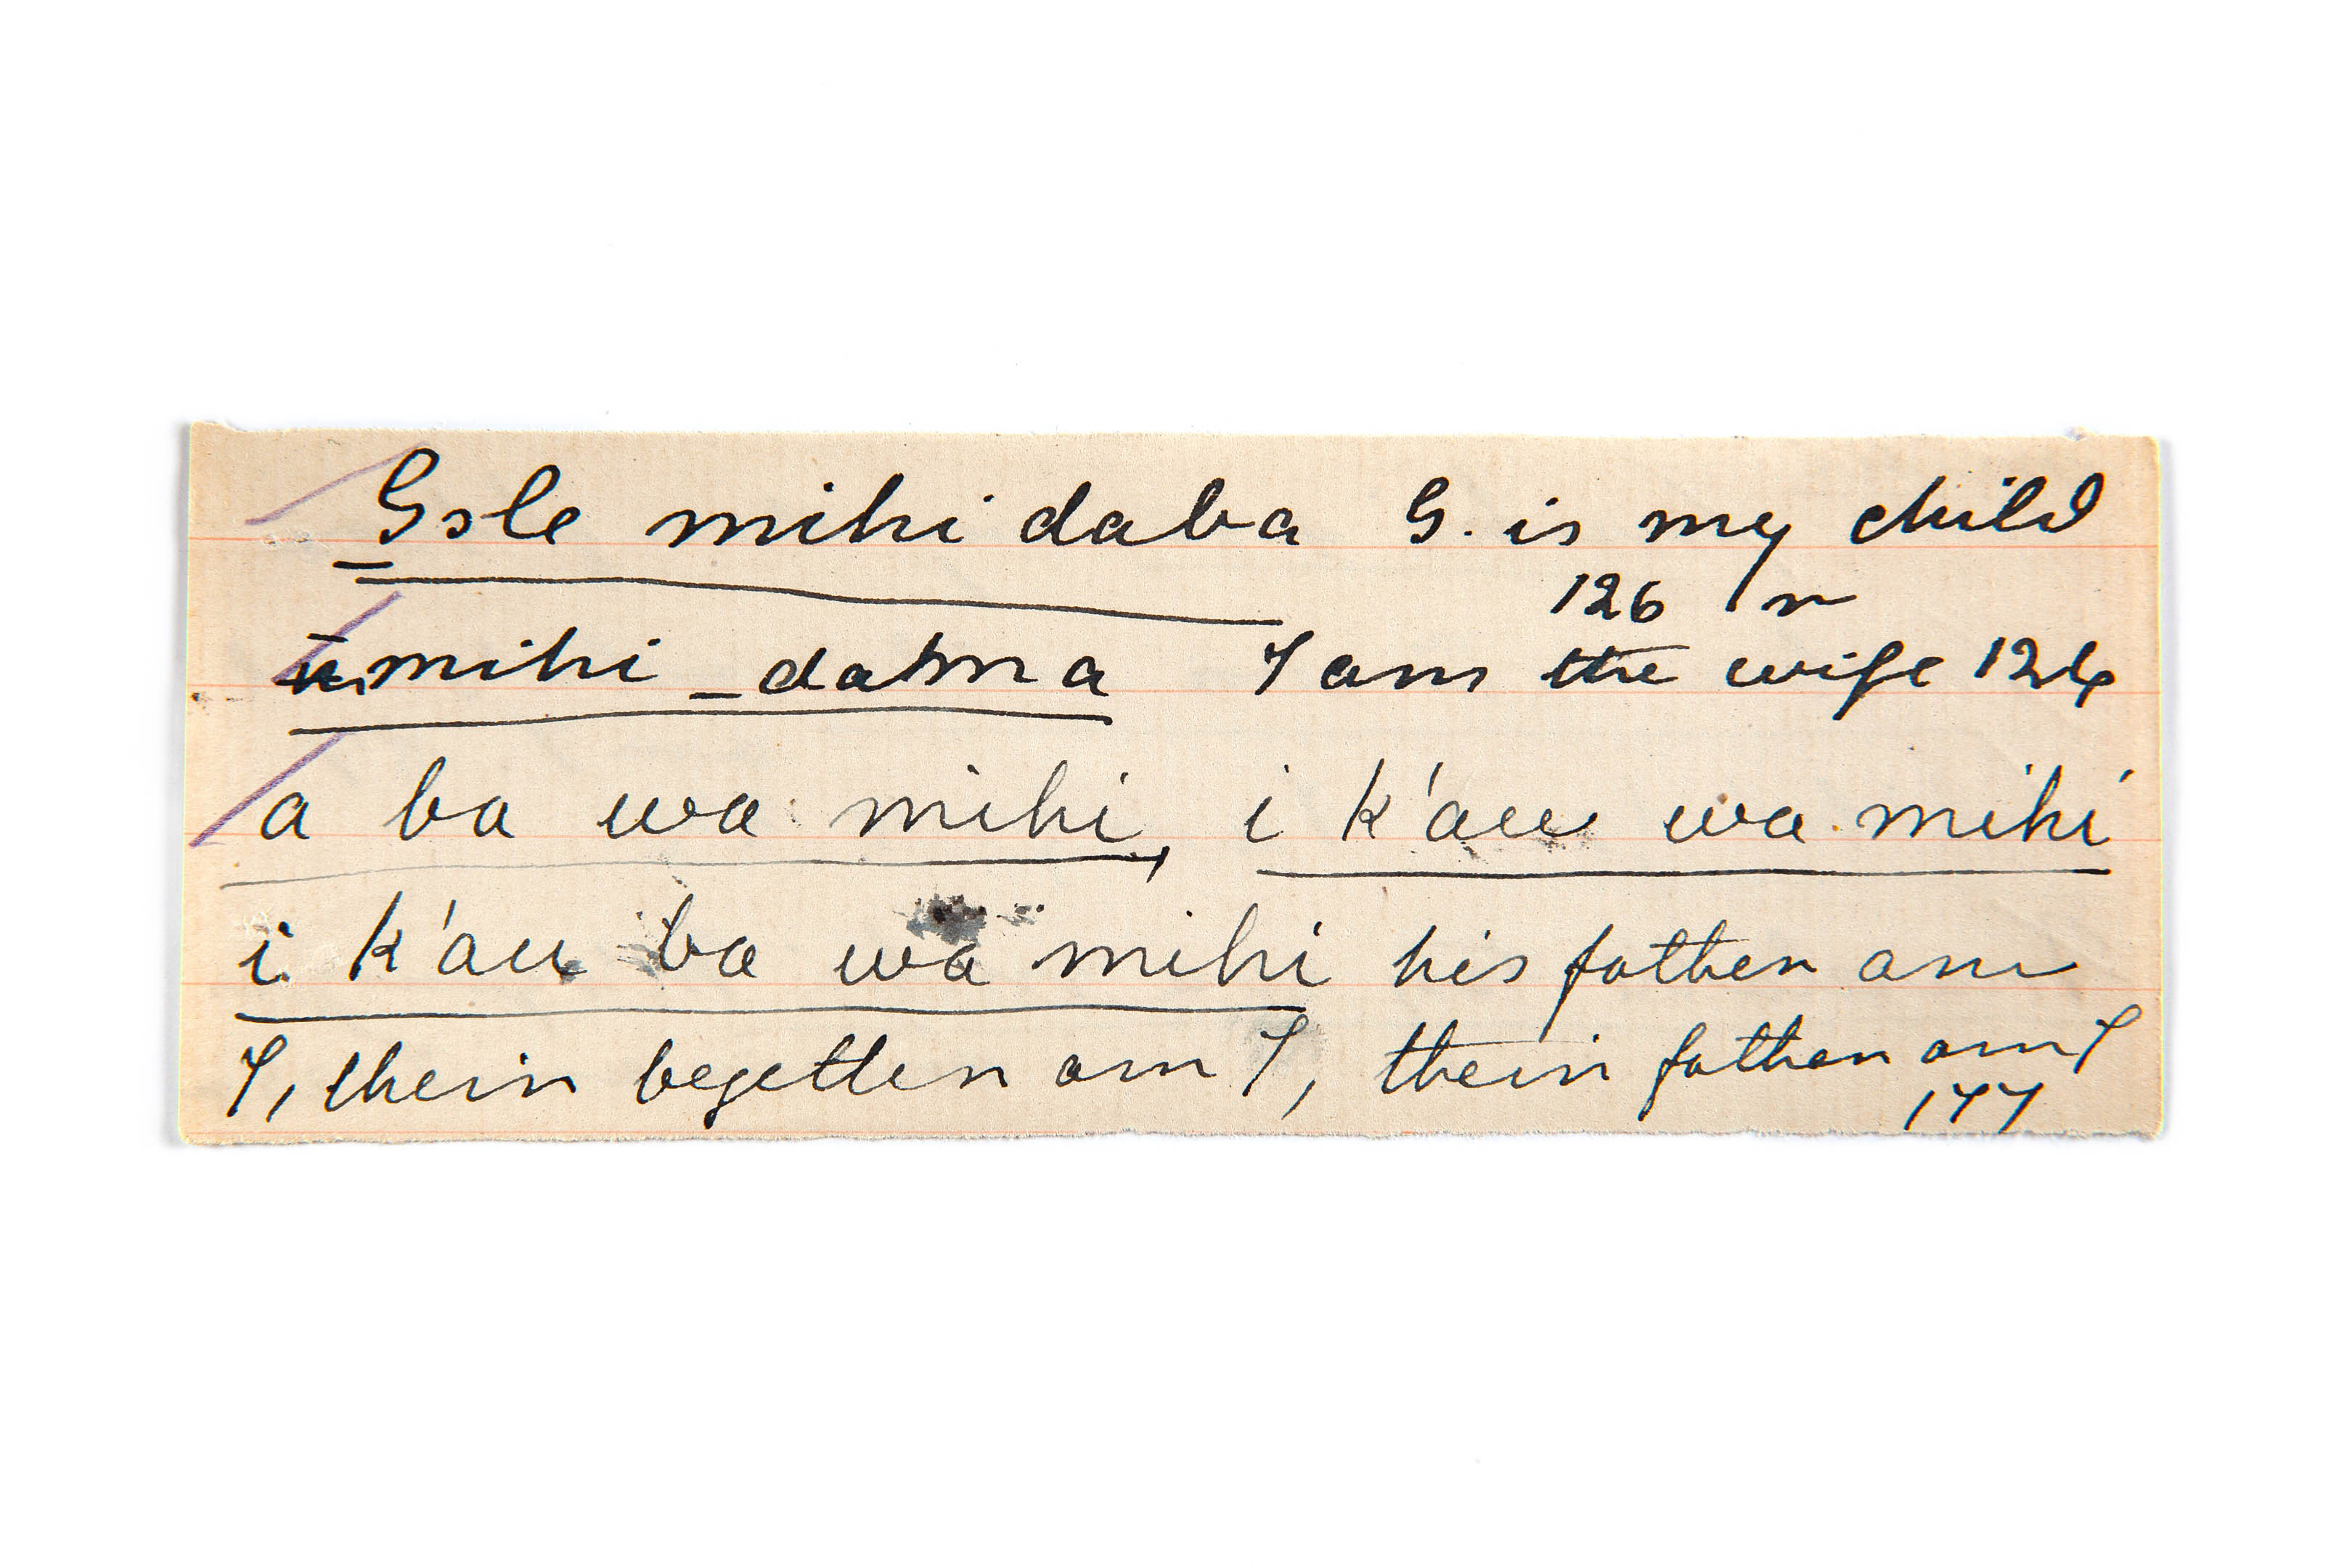 Gsle mihi daba G. is my child
126 r
mihi _ dama I am the wife 126
a ba wa mihi, i k'au wa mihi
i k'au ba wa mihi his father am
I, their begetter am I, their father am I
177